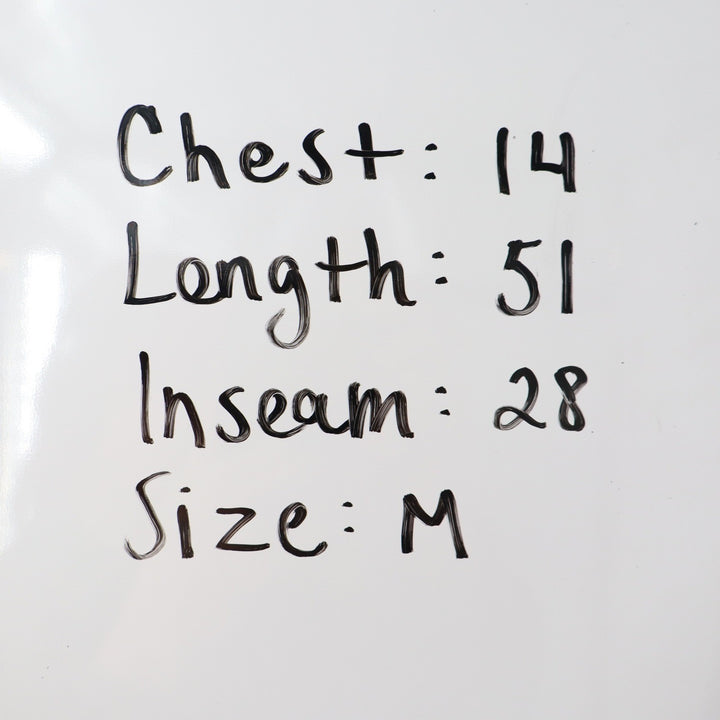 Chest: 14
Length: 51
Inseam: 28
Size: M